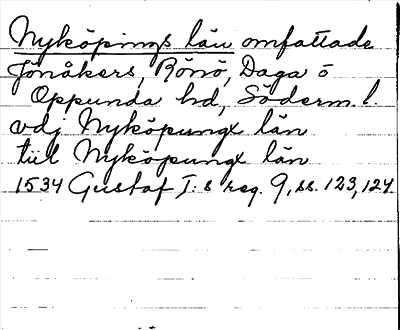 Nyköpings län omfattade
Jönåkers, Rönö, Daga o
Oppunda hd, Söderm. l.
vdj Nyköpungx län
till Nyköpungx län
1534 Gustaf I:s reg. 9, ss. 123, 124